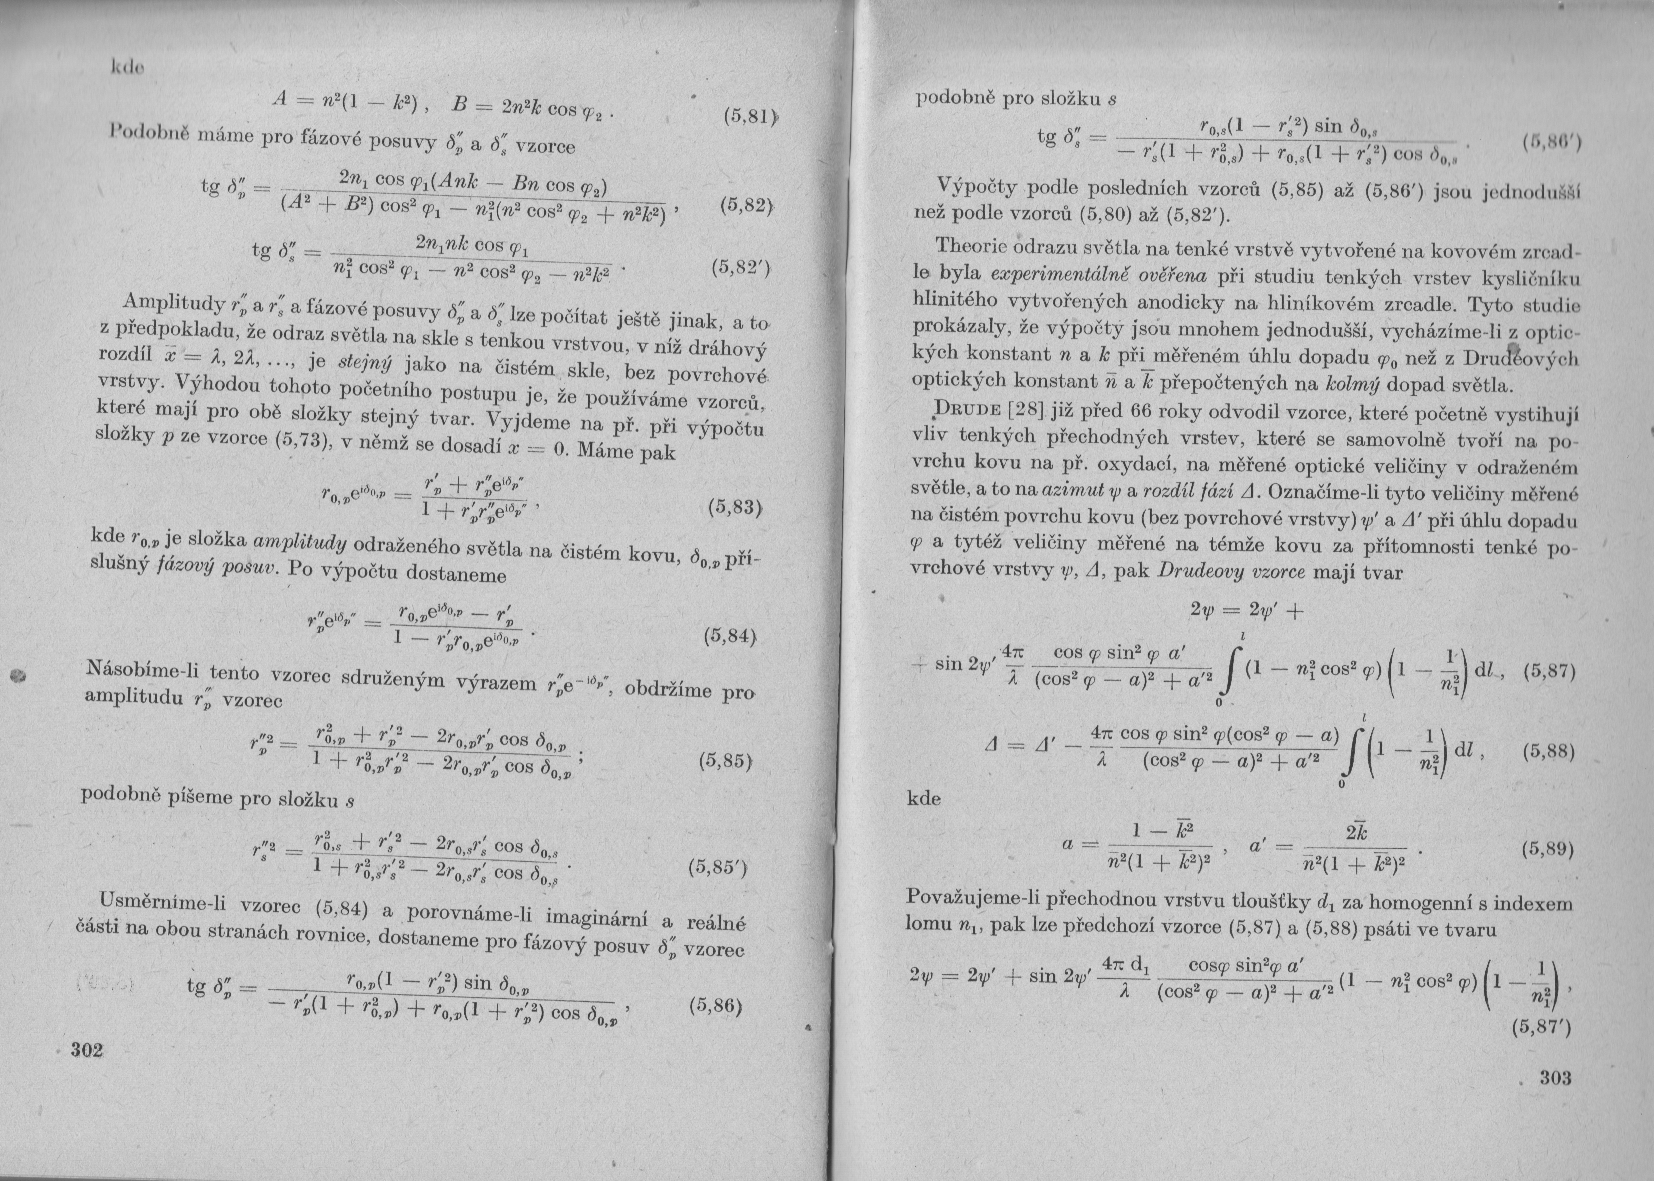 kde
A = n²(1 − k²) , B = 2n²k cos φ₂ . (5,81)
Podobně máme pro fázové posuvy δ″ₚ a δ″ₛ vzorce
tg δ″ₚ = 2n₁ cos φ₁(Ank − Bn cos φ₂) / (A² + B²) cos² φ₁ − n₁²(n² cos² φ₂ + n²k²) , (5,82)
tg δ″ₛ = 2n₁nk cos φ₁ / n₁² cos² φ₁ − n² cos² φ₂ − n²k² . (5,82′)
Amplitudy r″ₚ a r″ₛ a fázové posuvy δ″ₚ a δ″ₛ lze počítat ještě jinak, a to
z předpokladu, že odraz světla na skle s tenkou vrstvou, v níž dráhový
rozdíl x = λ, 2λ, ..., je stejný jako na čistém skle, bez povrchové
vrstvy. Výhodou tohoto početního postupu je, že používáme vzorců,
které mají pro obě složky stejný tvar. Vyjdeme na př. při výpočtu
složky p ze vzorce (5,73), v němž se dosadí x = 0. Máme pak
r₀,ₚe^{iδ₀,ₚ} = r′ₚ + r″ₚe^{iδₚ″} / 1 + r′ₚr″ₚe^{iδₚ″} , (5,83)
kde r₀,ₚ je složka amplitudy odraženého světla na čistém kovu, δ₀,ₚ pří-
slušný fázový posuv. Po výpočtu dostaneme
r″ₚe^{iδₚ″} = r₀,ₚe^{iδ₀,ₚ} − r′ₚ / 1 − r′ₚr₀,ₚe^{iδ₀,ₚ} . (5,84)
Násobíme-li tento vzorec sdruženým výrazem r″ₚe^{−iδₚ″}, obdržíme pro
amplitudu r″ₚ vzorec
r″ₚ² = r²₀,ₚ + r′ₚ² − 2r₀,ₚr′ₚ cos δ₀,ₚ / 1 + r²₀,ₚr′ₚ² − 2r₀,ₚr′ₚ cos δ₀,ₚ ; (5,85)
podobně píšeme pro složku s
r″ₛ² = r²₀,ₛ + r′ₛ² − 2r₀,ₛr′ₛ cos δ₀,ₛ / 1 + r²₀,ₛr′ₛ² − 2r₀,ₛr′ₛ cos δ₀,ₛ . (5,85′)
Usměrníme-li vzorec (5,84) a porovnáme-li imaginární a reálné
části na obou stranách rovnice, dostaneme pro fázový posuv δ″ₚ vzorec
tg δ″ₚ = r₀,ₚ(1 − r′ₚ²) sin δ₀,ₚ / − r′ₚ(1 + r²₀,ₚ) + r₀,ₚ(1 + r′ₚ²) cos δ₀,ₚ , (5,86)
302
podobně pro složku s
tg δ″ₛ = r₀,ₛ(1 − r′ₛ²) sin δ₀,ₛ / − r′ₛ(1 + r²₀,ₛ) + r₀,ₛ(1 + r′ₛ²) cos δ₀,ₛ . (5,86′)
Výpočty podle posledních vzorců (5,85) až (5,86′) jsou jednodušší
než podle vzorců (5,80) až (5,82′).
Theorie odrazu světla na tenké vrstvě vytvořené na kovovém zrcad-
le byla experimentálně ověřena při studiu tenkých vrstev kysličníku
hlinitého vytvořených anodicky na hliníkovém zrcadle. Tyto studie
prokázaly, že výpočty jsou mnohem jednodušší, vycházíme-li z optic-
kých konstant n a k při měřeném úhlu dopadu φ₀ než z Drudeových
optických konstant n̄ a k̄ přepočtených na kolmý dopad světla.
DRUDE [28] již před 66 roky odvodil vzorce, které početně vystihují
vliv tenkých přechodných vrstev, které se samovolně tvoří na po-
vrchu kovu na př. oxydací, na měřené optické veličiny v odraženém
světle, a to na azimut ψ a rozdíl fází Δ. Označíme-li tyto veličiny měřené
na čistém povrchu kovu (bez povrchové vrstvy) ψ′ a Δ′ při úhlu dopadu
φ a tytéž veličiny měřené na témže kovu za přítomnosti tenké po-
vrchové vrstvy ψ, Δ, pak Drudeovy vzorce mají tvar
2ψ = 2ψ′ +
+ sin 2ψ′ 4π/λ cos φ sin² φ a′ / (cos² φ − a)² + a′² ∫₀ˡ (1 − n₁² cos² φ) (1 − 1/n₁²) dl , (5,87)
Δ = Δ′ − 4π/λ cos φ sin² φ(cos² φ − a) / (cos² φ − a)² + a′² ∫₀ˡ (1 − 1/n₁²) dl , (5,88)
kde
a = 1 − k̄² / n̄²(1 + k̄²)² , a′ = 2k̄ / n̄²(1 + k̄²)² . (5,89)
Považujeme-li přechodnou vrstvu tloušťky d₁ za homogenní s indexem
lomu n₁, pak lze předchozí vzorce (5,87) a (5,88) psáti ve tvaru
2ψ = 2ψ′ + sin 2ψ′ 4π d₁/λ cosφ sin²φ a′ / (cos² φ − a)² + a′² (1 − n₁² cos² φ) (1 − 1/n₁²) ,
(5,87′)
303